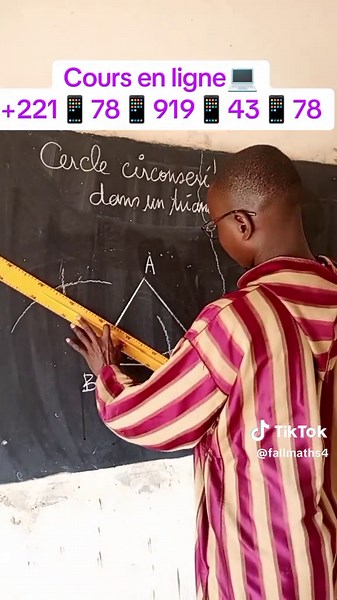 Cours en ligne💻
+221📱78📱919📱43📱78
Cercle circonscri
dans un trian
A
B
TikTok
@fallmaths4